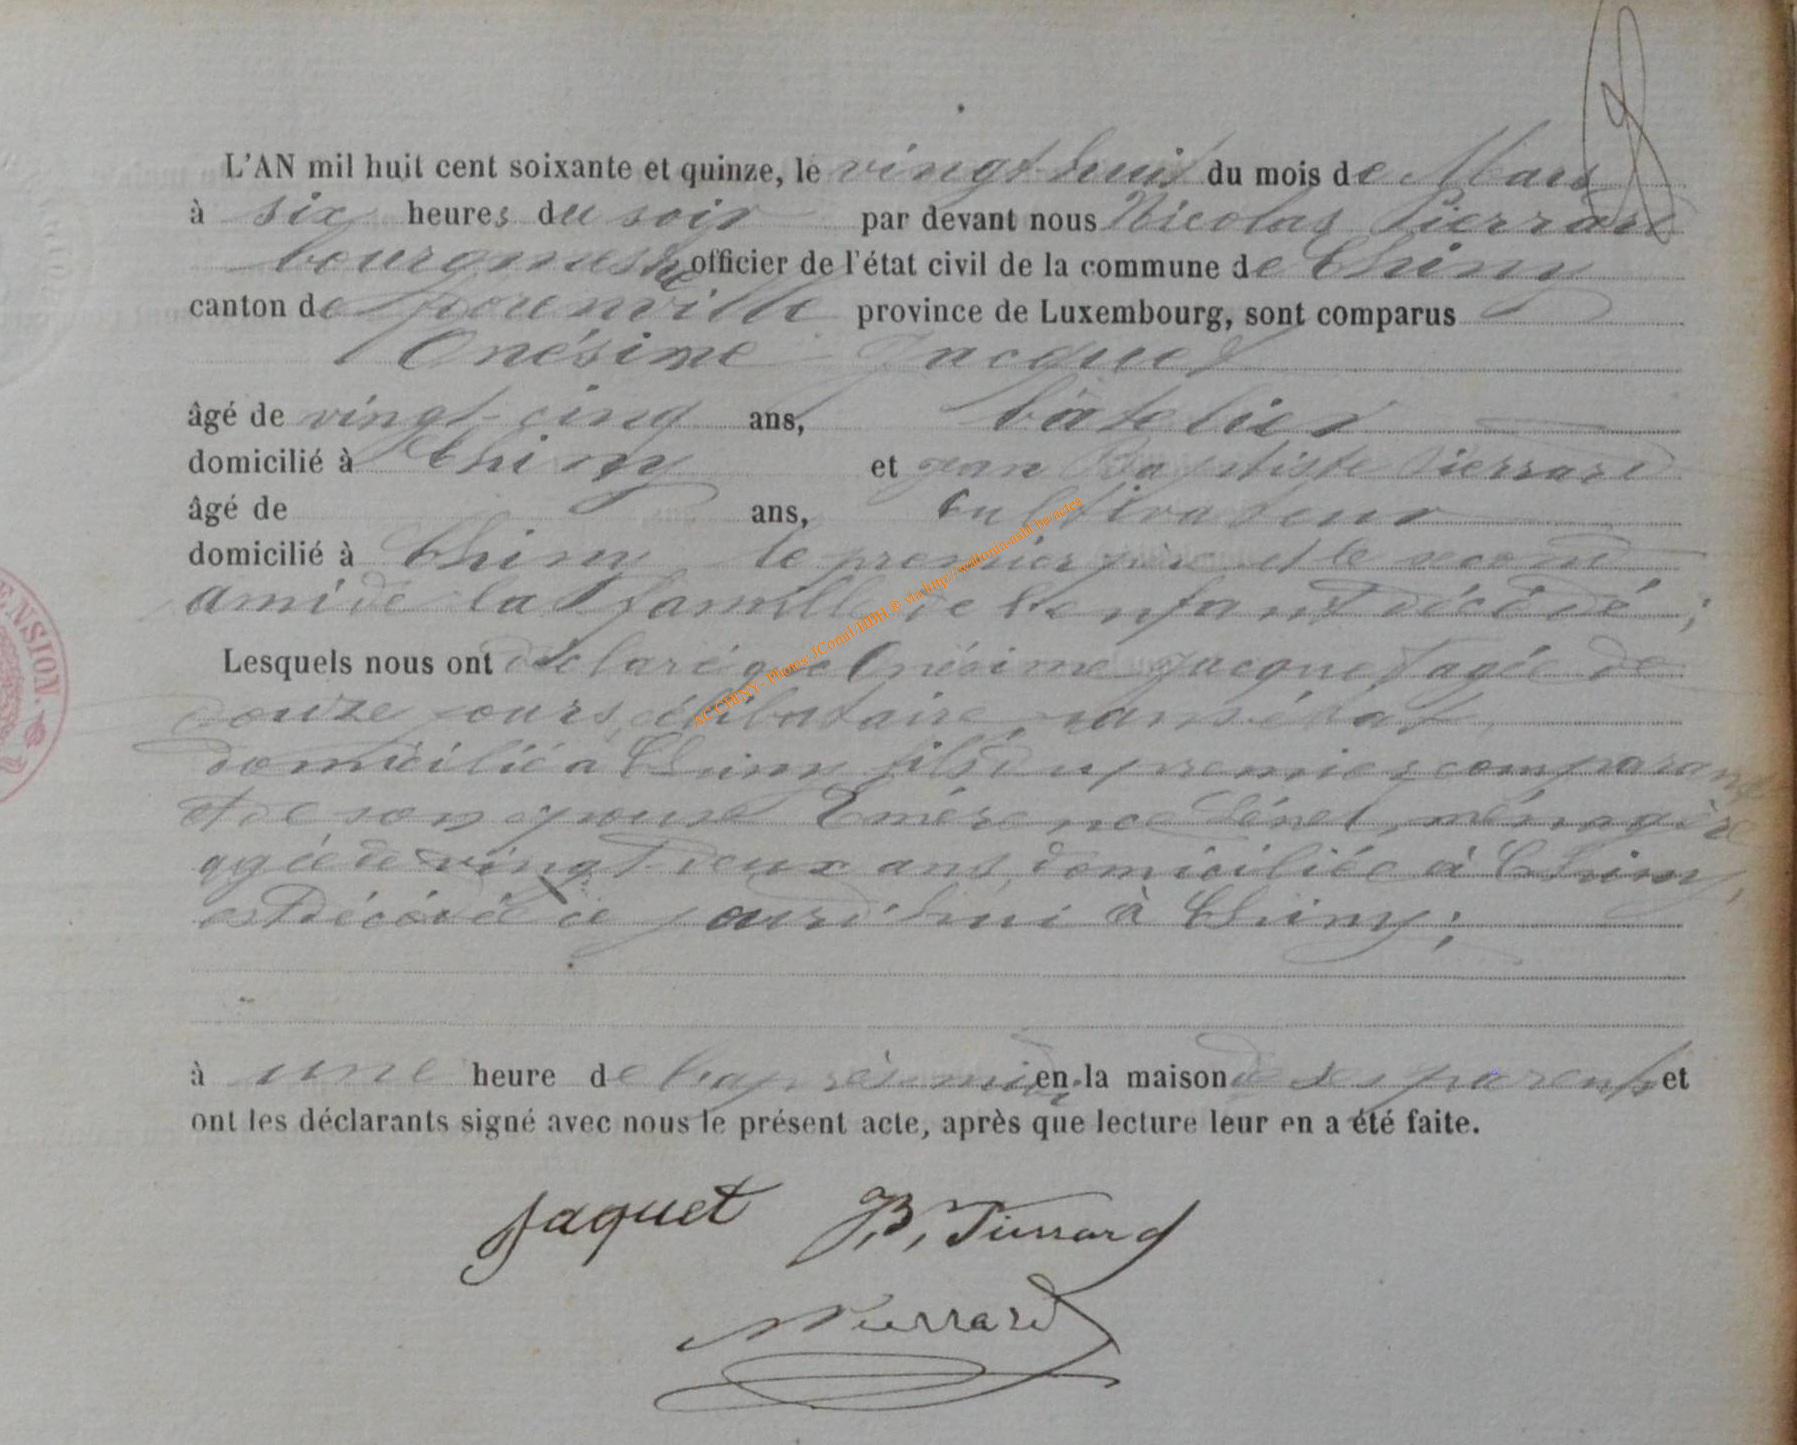 L'AN mil huit cent soixante et quinze, le vingt huit du mois de Mars
à six heures du soir par devant nous Nicolas Pierrard
bourgmestre officier de l'état civil de la commune de Chiny
canton de florenville province de Luxembourg, sont comparus
Onésime Jacquet
âgé de vingt-cinq ans, batelier
domicilié à Chiny et jean Baptiste Pierrard
âgé de ans, cultivateur
domicilié à Chiny le premier père et le second
ami de la famille de l'enfant décédé ;
Lesquels nous ont déclaré que Onésime Jacquet agée de
jours, célibataire, sans état,
domicilié à Chiny fils du premier comparant
et de son epouse Emérence ménagère
agée de vingt deux ans, domiciliée à Chiny,
est décédé ce jourd'hui à Chiny ;
à une heure de l'après-midi en la maison de ses parents et
ont les déclarants signé avec nous le présent acte, après que lecture leur en a été faite.
Jaquet J,B, Pierrard
NPierrard
AC CHINY- Photos JConul-HDH @ via http://wallonia-asbl.be/actes
ENSION.